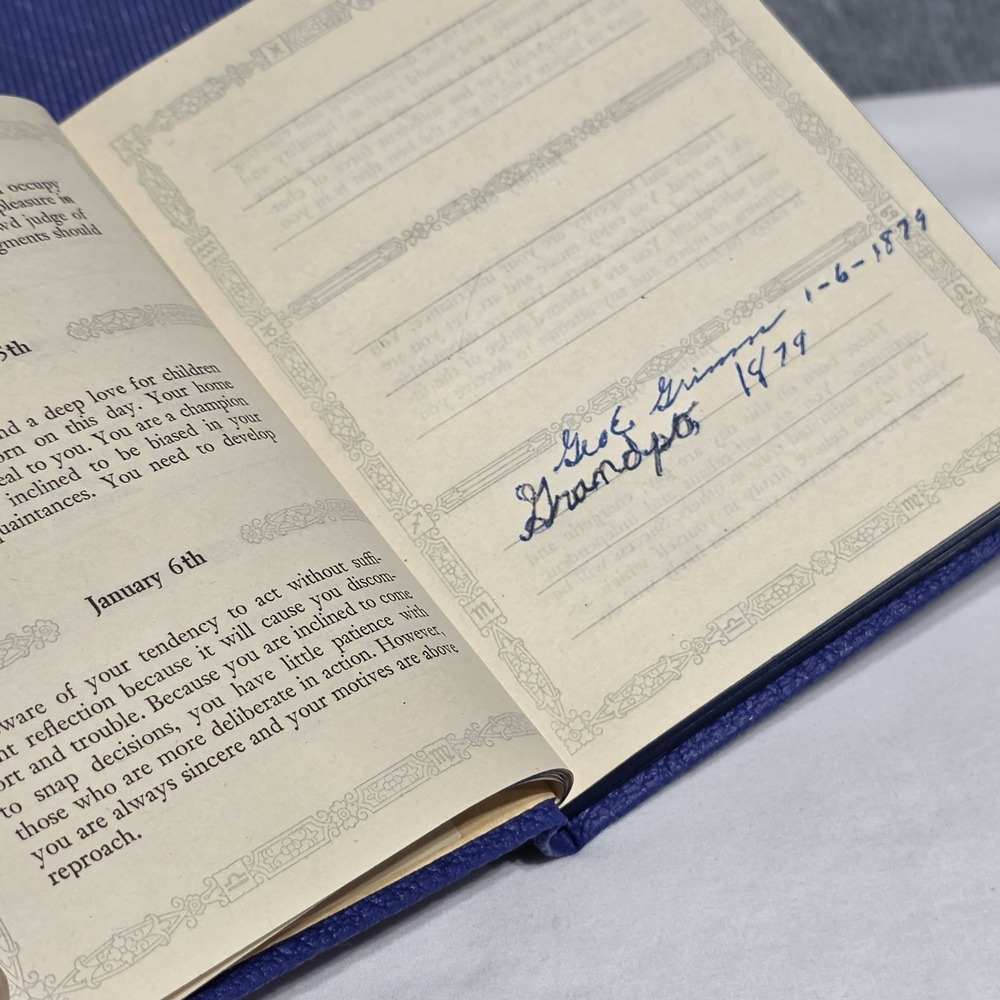 occupy
pleasure in
wd judge of
gments should
5th
nd a deep love for children
orn on this day. Your home
eal to you. You are a champion
inclined to be biased in your
quaintances. You need to develop
January 6th
ware of your tendency to act without suffi-
nt reflection because it will cause you discom-
ort and trouble. Because you are inclined to come
to snap decisions, you have little patience with
those who are more deliberate in action. However,
you are always sincere and your motives are above
reproach.
Geo E. Grimm 1-6-1879
Grandpa 1879